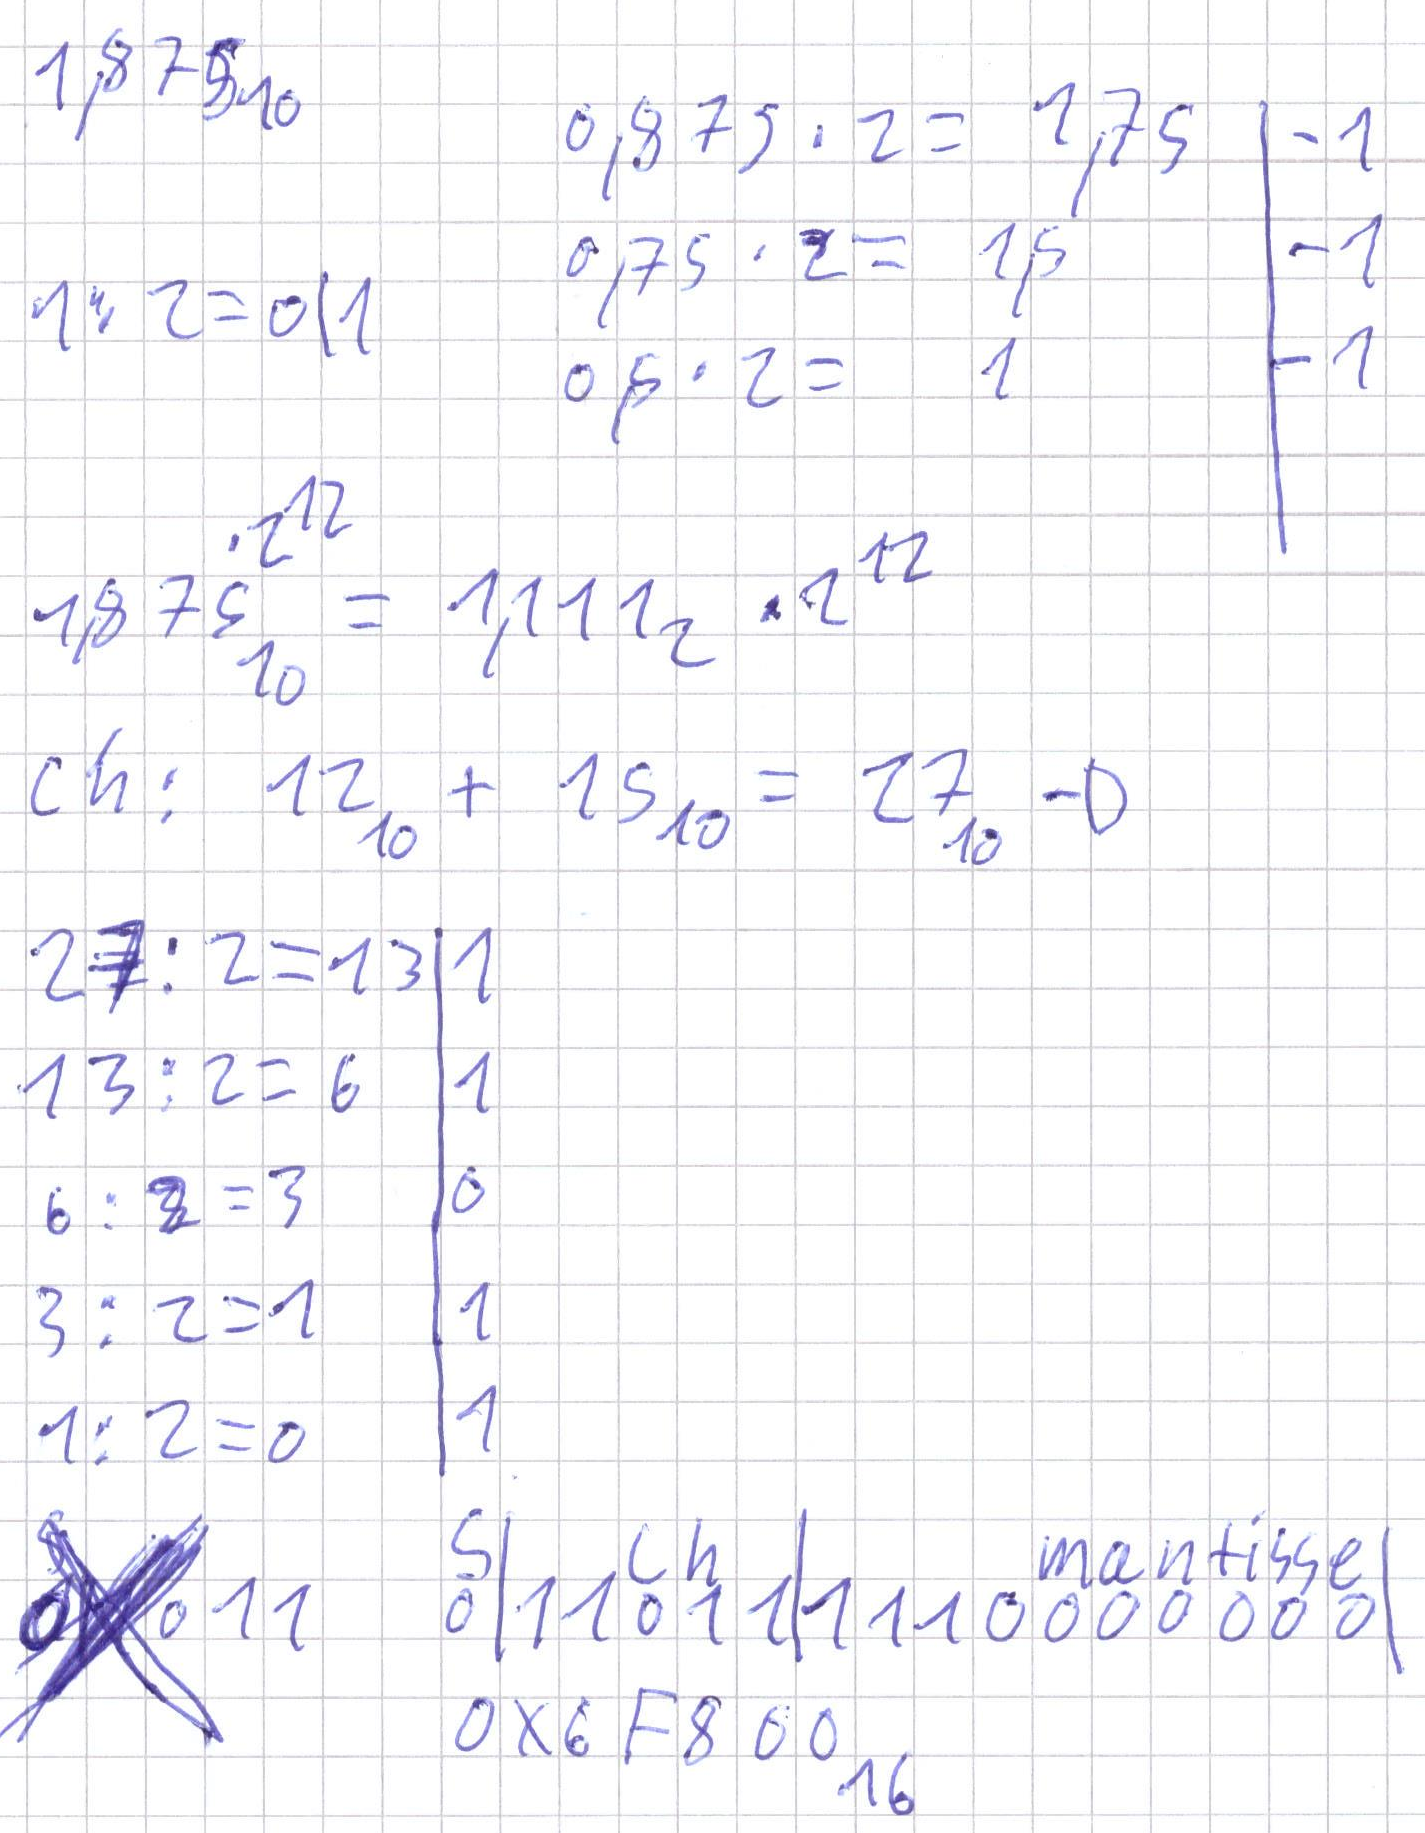 1,875₁₀
0,875 · 2 = 1,75 | - 1
0,75 · 2 = 1,5 | - 1
1 : 2 = 0 | 1
0,5 · 2 = 1 | - 1
1,875₁₀ · 2¹² = 1,111₂ · 2¹²
Ch: 12₁₀ + 15₁₀ = 27₁₀ -D
27 : 2 = 13 | 1
13 : 2 = 6 | 1
6 : 2 = 3 | 0
3 : 2 = 1 | 1
1 : 2 = 0 | 1
S | Ch | mantisse |
011 0 | 11011 | 1110000000 |
0x6F800₁₆